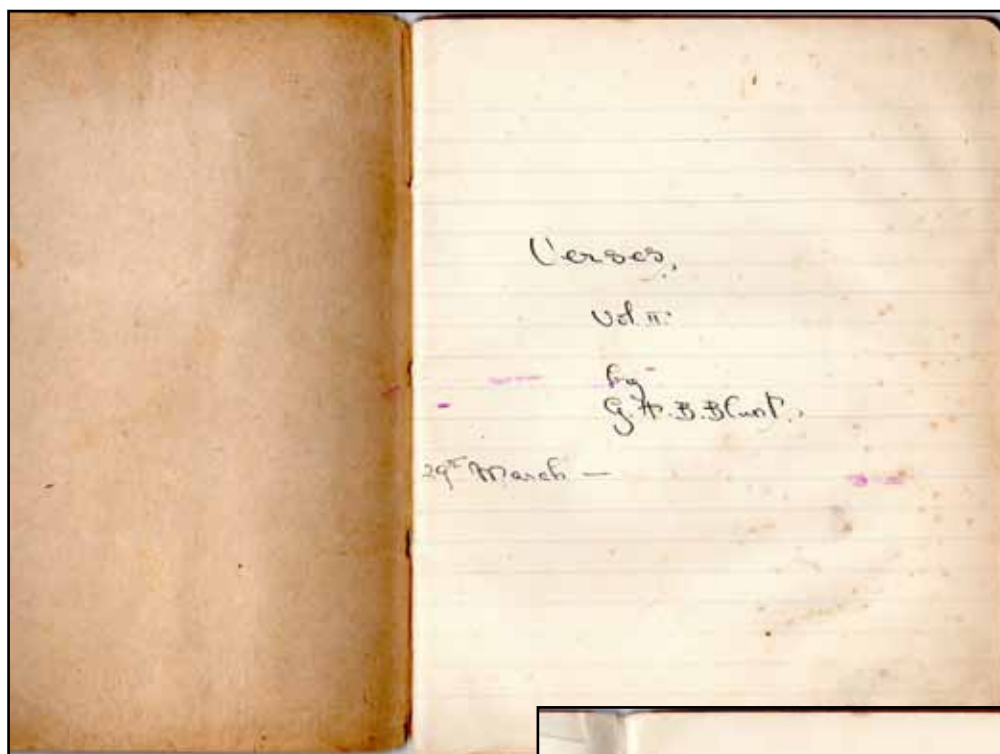 Verses,
Vol. II.
by
G. H. B. Blunt.
29th March —